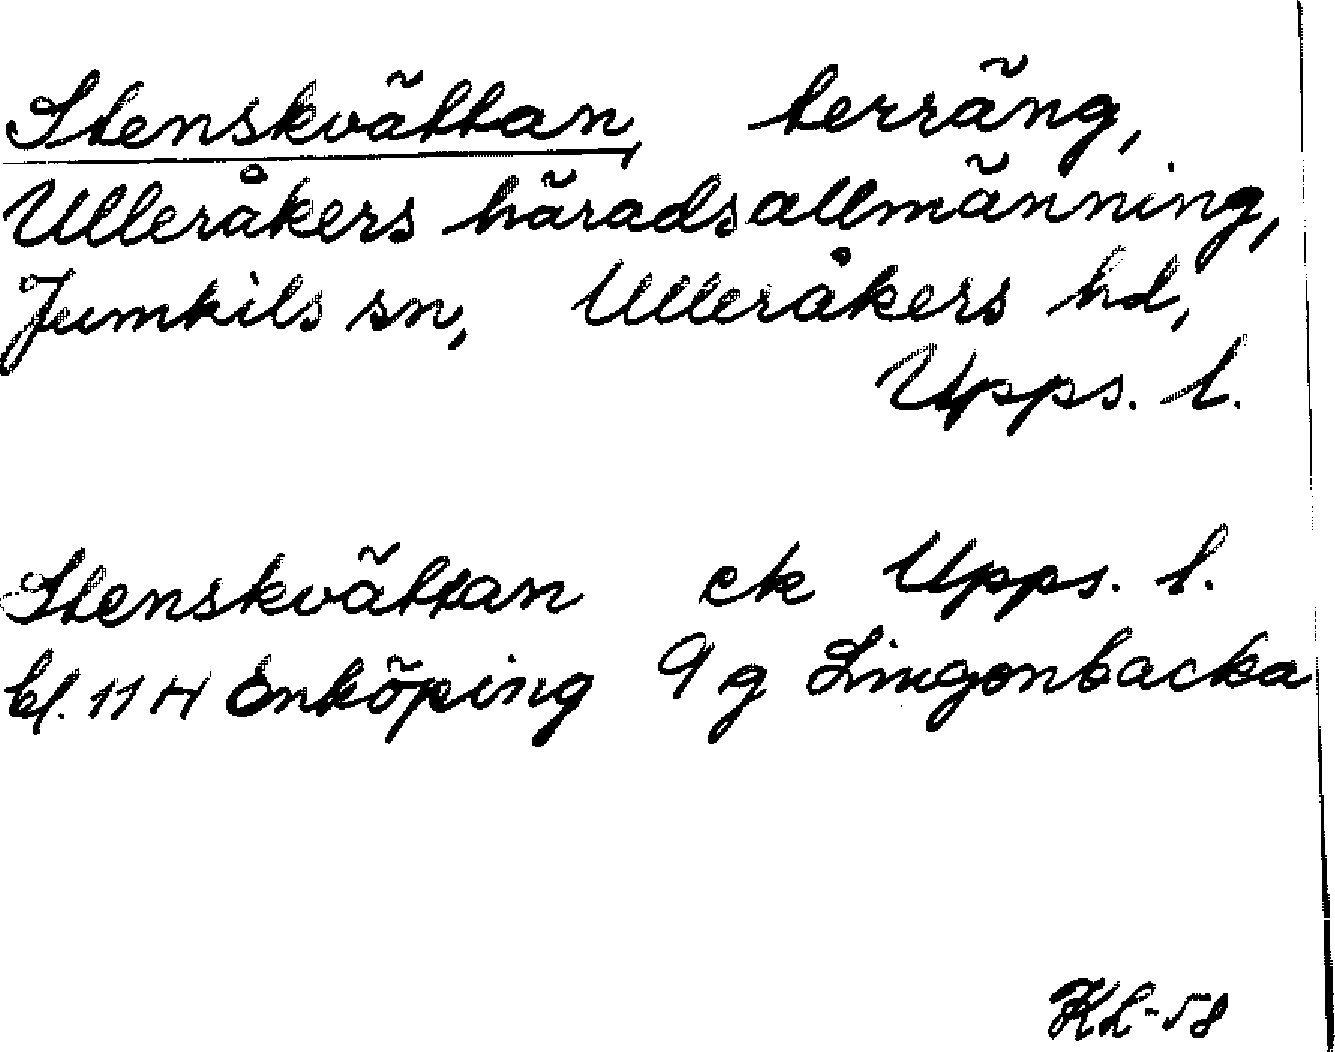 Stenskvättan, terräng,
Ulleråkers häradsallmänning,
Jumkils sn, Ulleråkers hd,
Upps. l.
Stenskvättan ek Upps. l.
bl. 11H Enköping 9g Lingonbacka
KL-58